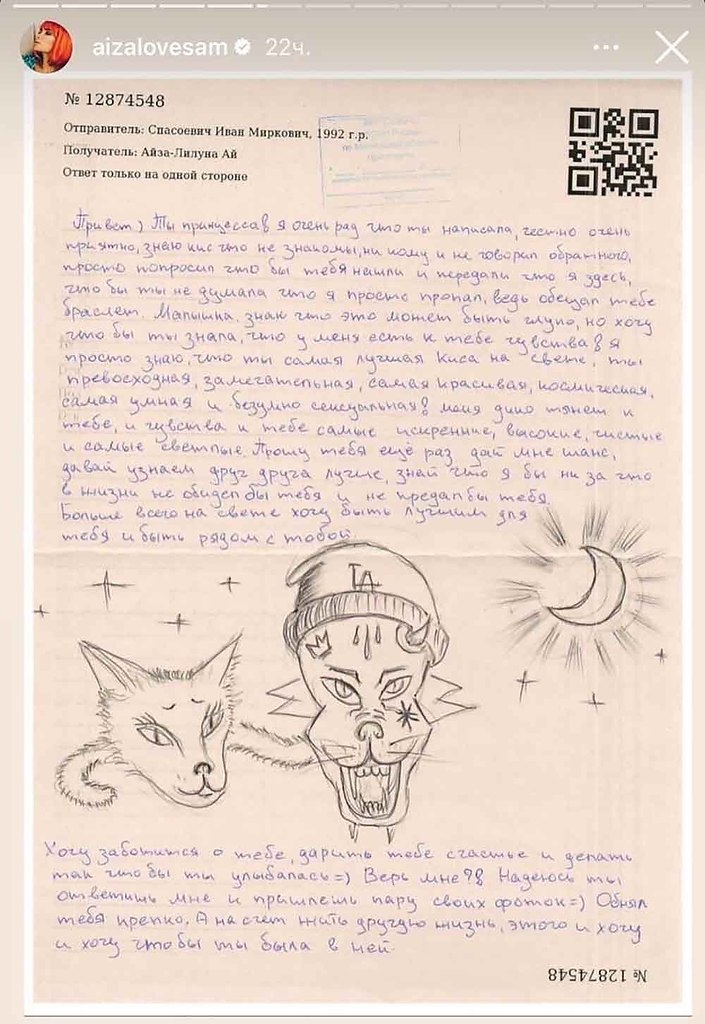 aizalovesam 22ч.
№ 12874548
Отправитель: Спасоевич Иван Миркович, 1992 г.р.
Получатель: Айза-Лилуна Ай
Ответ только на одной стороне
Привет) Ты принцесса я очень рад что ты написала, честно очень
приятно, знаю кис что не знакомы, ни кому и не говорил обратного,
просто попросил что бы тебя нашли и передали что я здесь,
что бы ты не думала что я просто пропал, ведь обещал тебе
браслет. Малышка, знак что это может быть глупо, но хочу
что бы ты знала, что у меня есть к тебе чувства я
просто знаю, что ты самая лучшая киса на свете, ты
превосходная, замечательная, самая красивая, космическая,
самая умная и безумно сексуальная! меня дико тянет к
тебе, и чувства к тебе самые искренние, высокие, чистые
и самые светлые. Прошу тебя ещё раз дай мне шанс,
давай узнаем друг друга лучше, знай что я бы ни за что
в жизни не обидел бы тебя и не предал бы тебя.
Больше всего на свете хочу быть лучшим для
тебя и быть рядом с тобой.
LA
Хочу заботится о тебе, дарить тебе счастье и делать
так что бы ты улыбалась=) Верь мне?! Надеюсь ты
ответишь мне и пришлешь пару своих фоток=) Обнял
тебя крепко. А на счет жить другую жизнь, этого и хочу
и хочу что бы ты была в ней.
№ 12874548